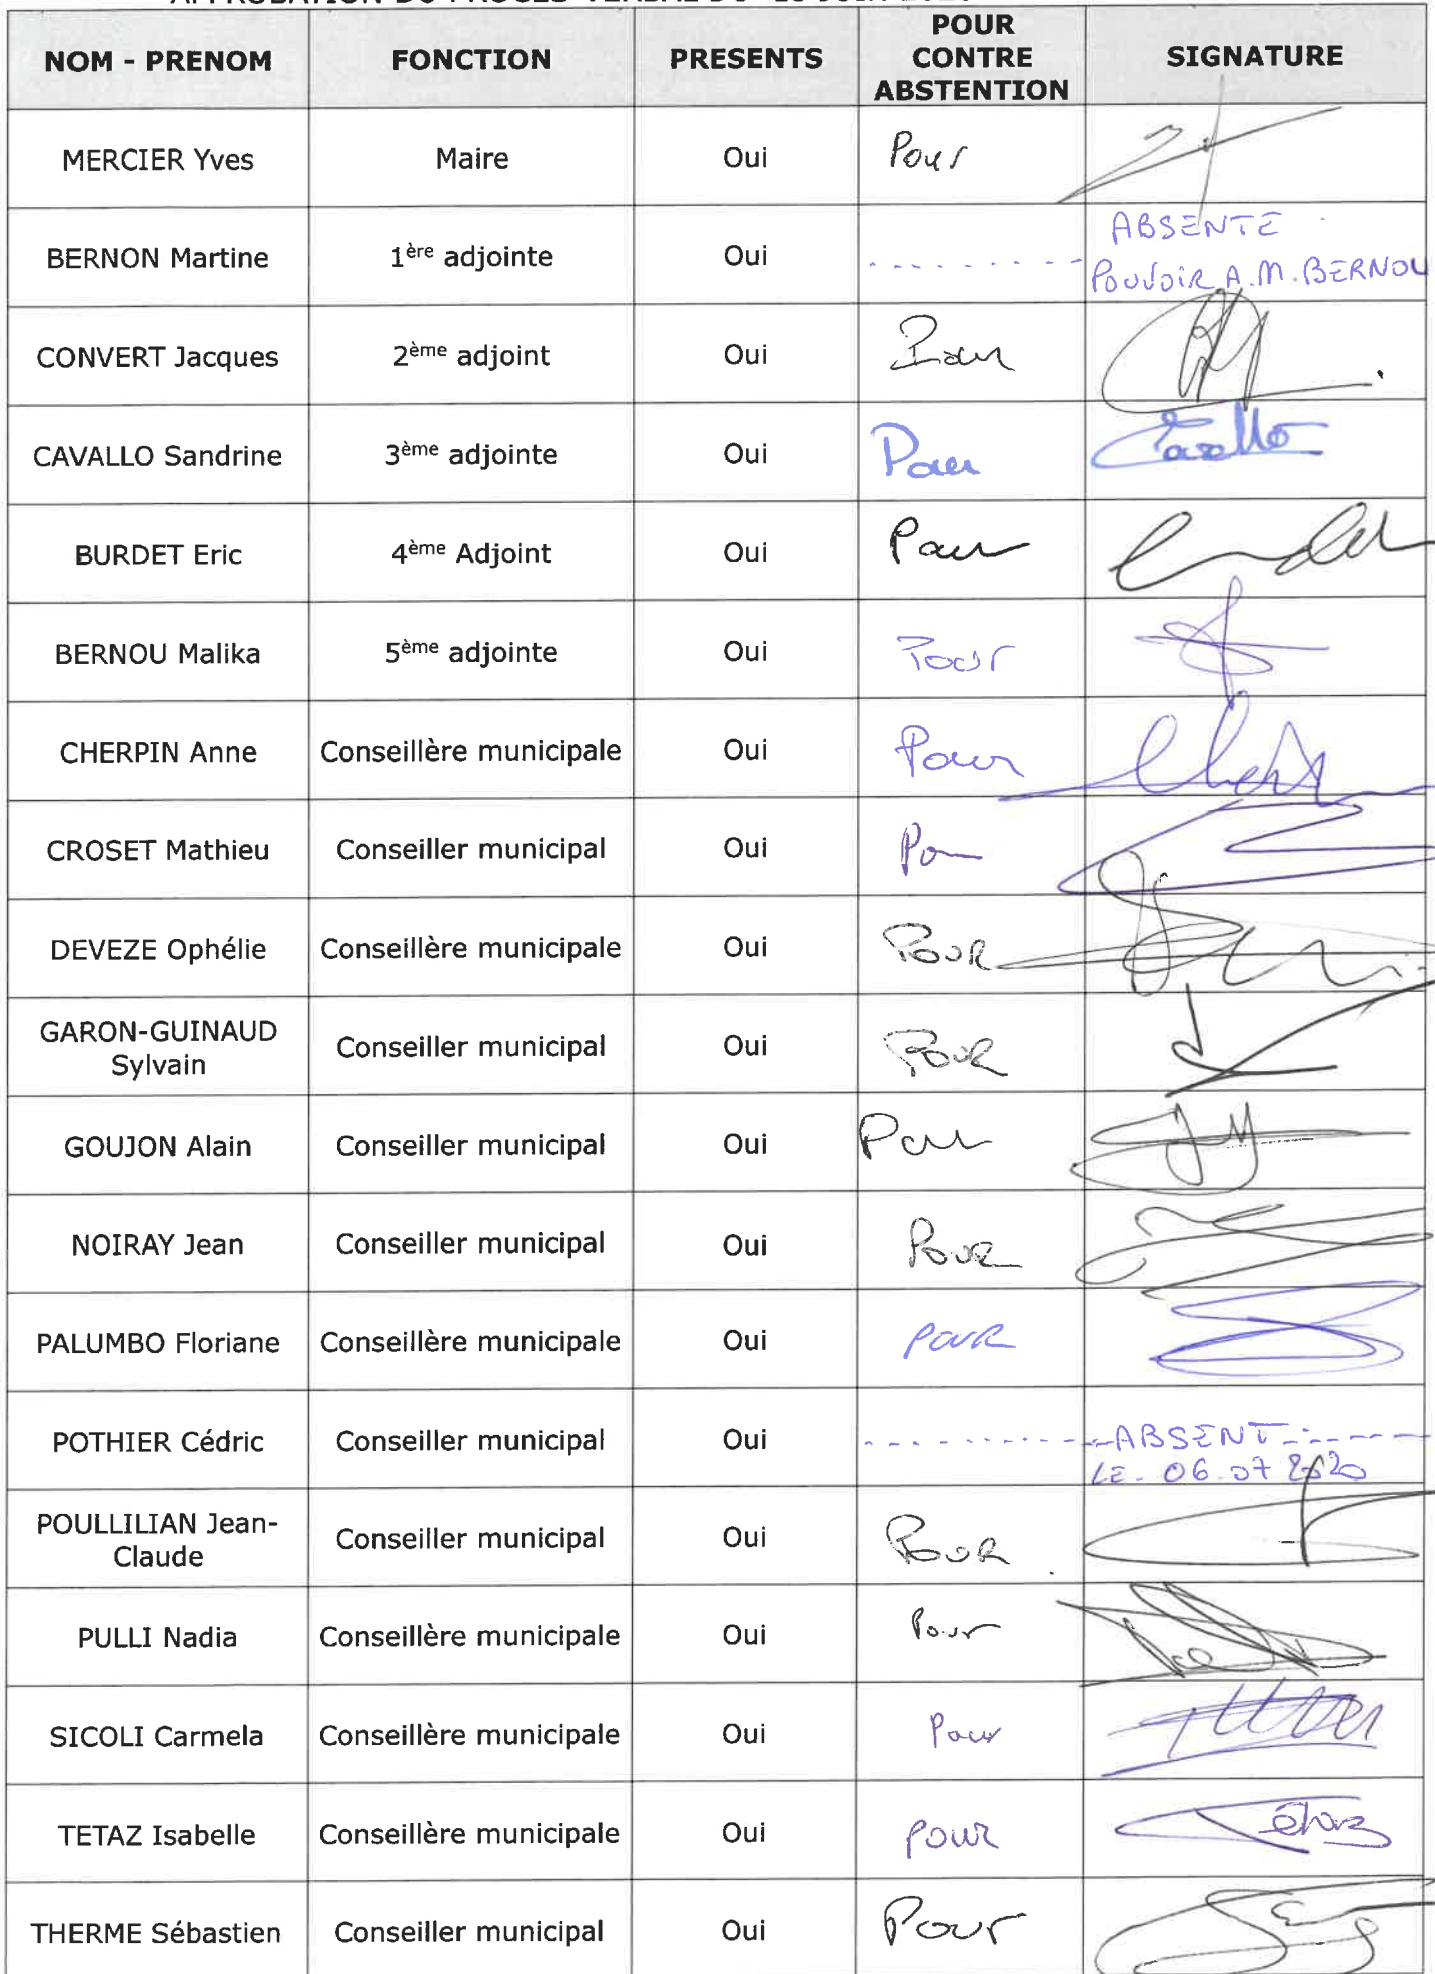 NOM - PRENOM FONCTION PRESENTS POUR CONTRE ABSTENTION SIGNATURE
MERCIER Yves Maire Oui Pour
BERNON Martine 1ère adjointe Oui ABSENTE
POUVOIR A.M.BERNOU
CONVERT Jacques 2ème adjoint Oui Pour
CAVALLO Sandrine 3ème adjointe Oui Pour Cavallo
BURDET Eric 4ème Adjoint Oui Pour
BERNOU Malika 5ème adjointe Oui Pour
CHERPIN Anne Conseillère municipale Oui Pour
CROSET Mathieu Conseiller municipal Oui Pour
DEVEZE Ophélie Conseillère municipale Oui POUR
GARON-GUINAUD
Sylvain Conseiller municipal Oui POUR
GOUJON Alain Conseiller municipal Oui Pour
NOIRAY Jean Conseiller municipal Oui POUR
PALUMBO Floriane Conseillère municipale Oui POUR
POTHIER Cédric Conseiller municipal Oui ABSENT
LE 06.07 2020
POULLILIAN Jean-
Claude Conseiller municipal Oui POUR
PULLI Nadia Conseillère municipale Oui Pour
SICOLI Carmela Conseillère municipale Oui Pour
TETAZ Isabelle Conseillère municipale Oui POUR Tétaz
THERME Sébastien Conseiller municipal Oui Pour